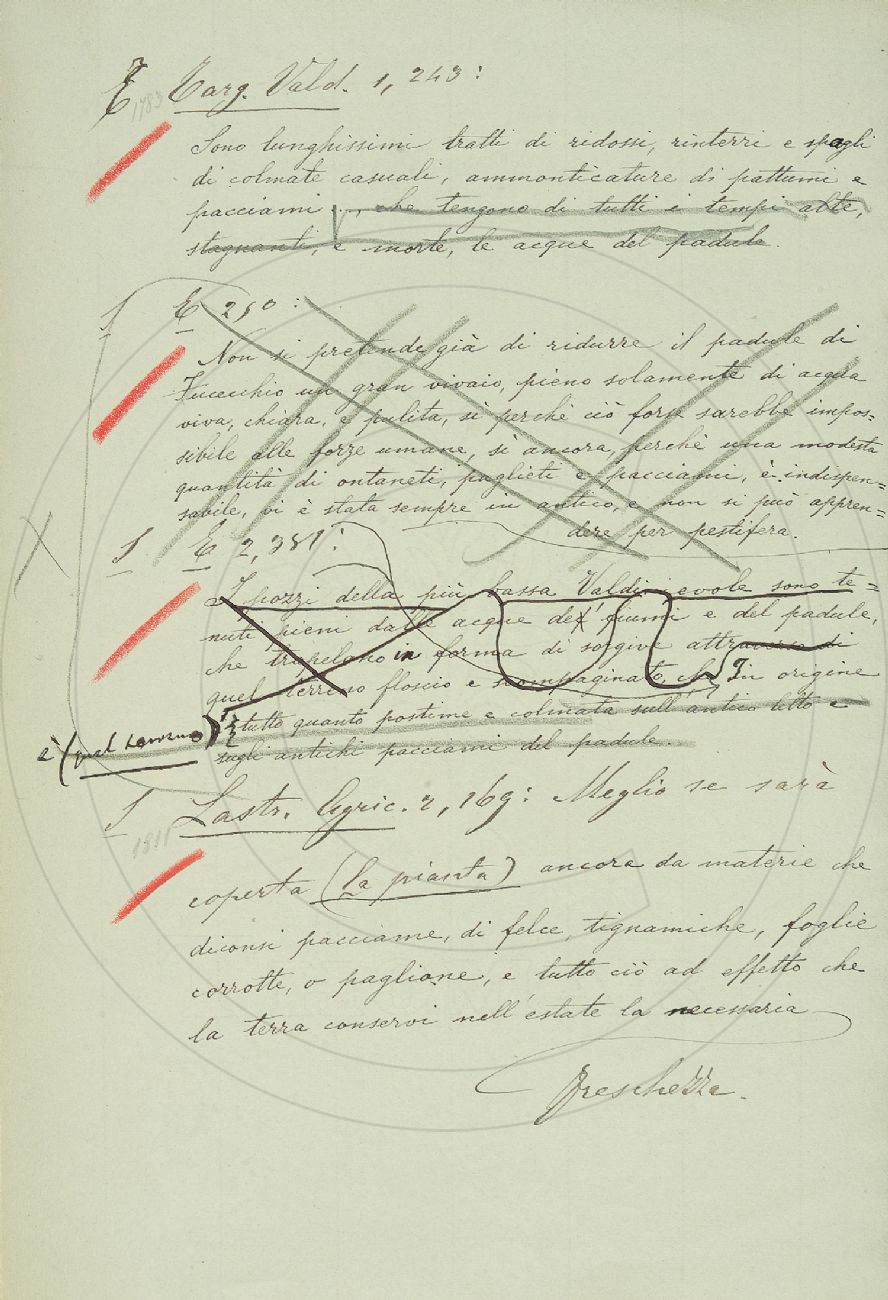 T Targ. Vald. 1, 243:
1783
Sono lunghissimi tratti di ridossi, rinterri e spagli
di colmate casuali, ammonticature di pattumi e
pacciami ..., che tengono di tutti i tempi alte,
stagnanti, e morte, le acque del padule.
E 250:
Non si pretende già di ridurre il padule di
Fucecchio un gran vivaio, pieno solamente di acqua
viva, chiara, e pulita, sì perchè ciò forse sarebbe impos=
sibile alle forze umane, sì ancora, perchè una modesta
quantità di ontaneti, paglieti e pacciami, è indispen=
sabile, vi è stata sempre in antico, e non si può appren=
dere per pestifera.
E 2, 381:
I pozzi della più bassa Valdinievole sono te=
nuti pieni dalle acque de' fiumi e del padule,
che trapelano in forma di sorgive attraverso di
quel terreno floscio e scompaginato, che in origine
è (quel terreno) tutto quanto postime e colmata sull'antico letto e
sugli antichi pacciami del padule.
Lastr. Agric. 2, 169: Meglio se sarà
coperta (la pianta) ancora da materie che
diconsi pacciame, di felce, tignamiche, foglie
corrotte, o paglione, e tutto ciò ad effetto che
la terra conservi nell'estate la necessaria
freschezza.